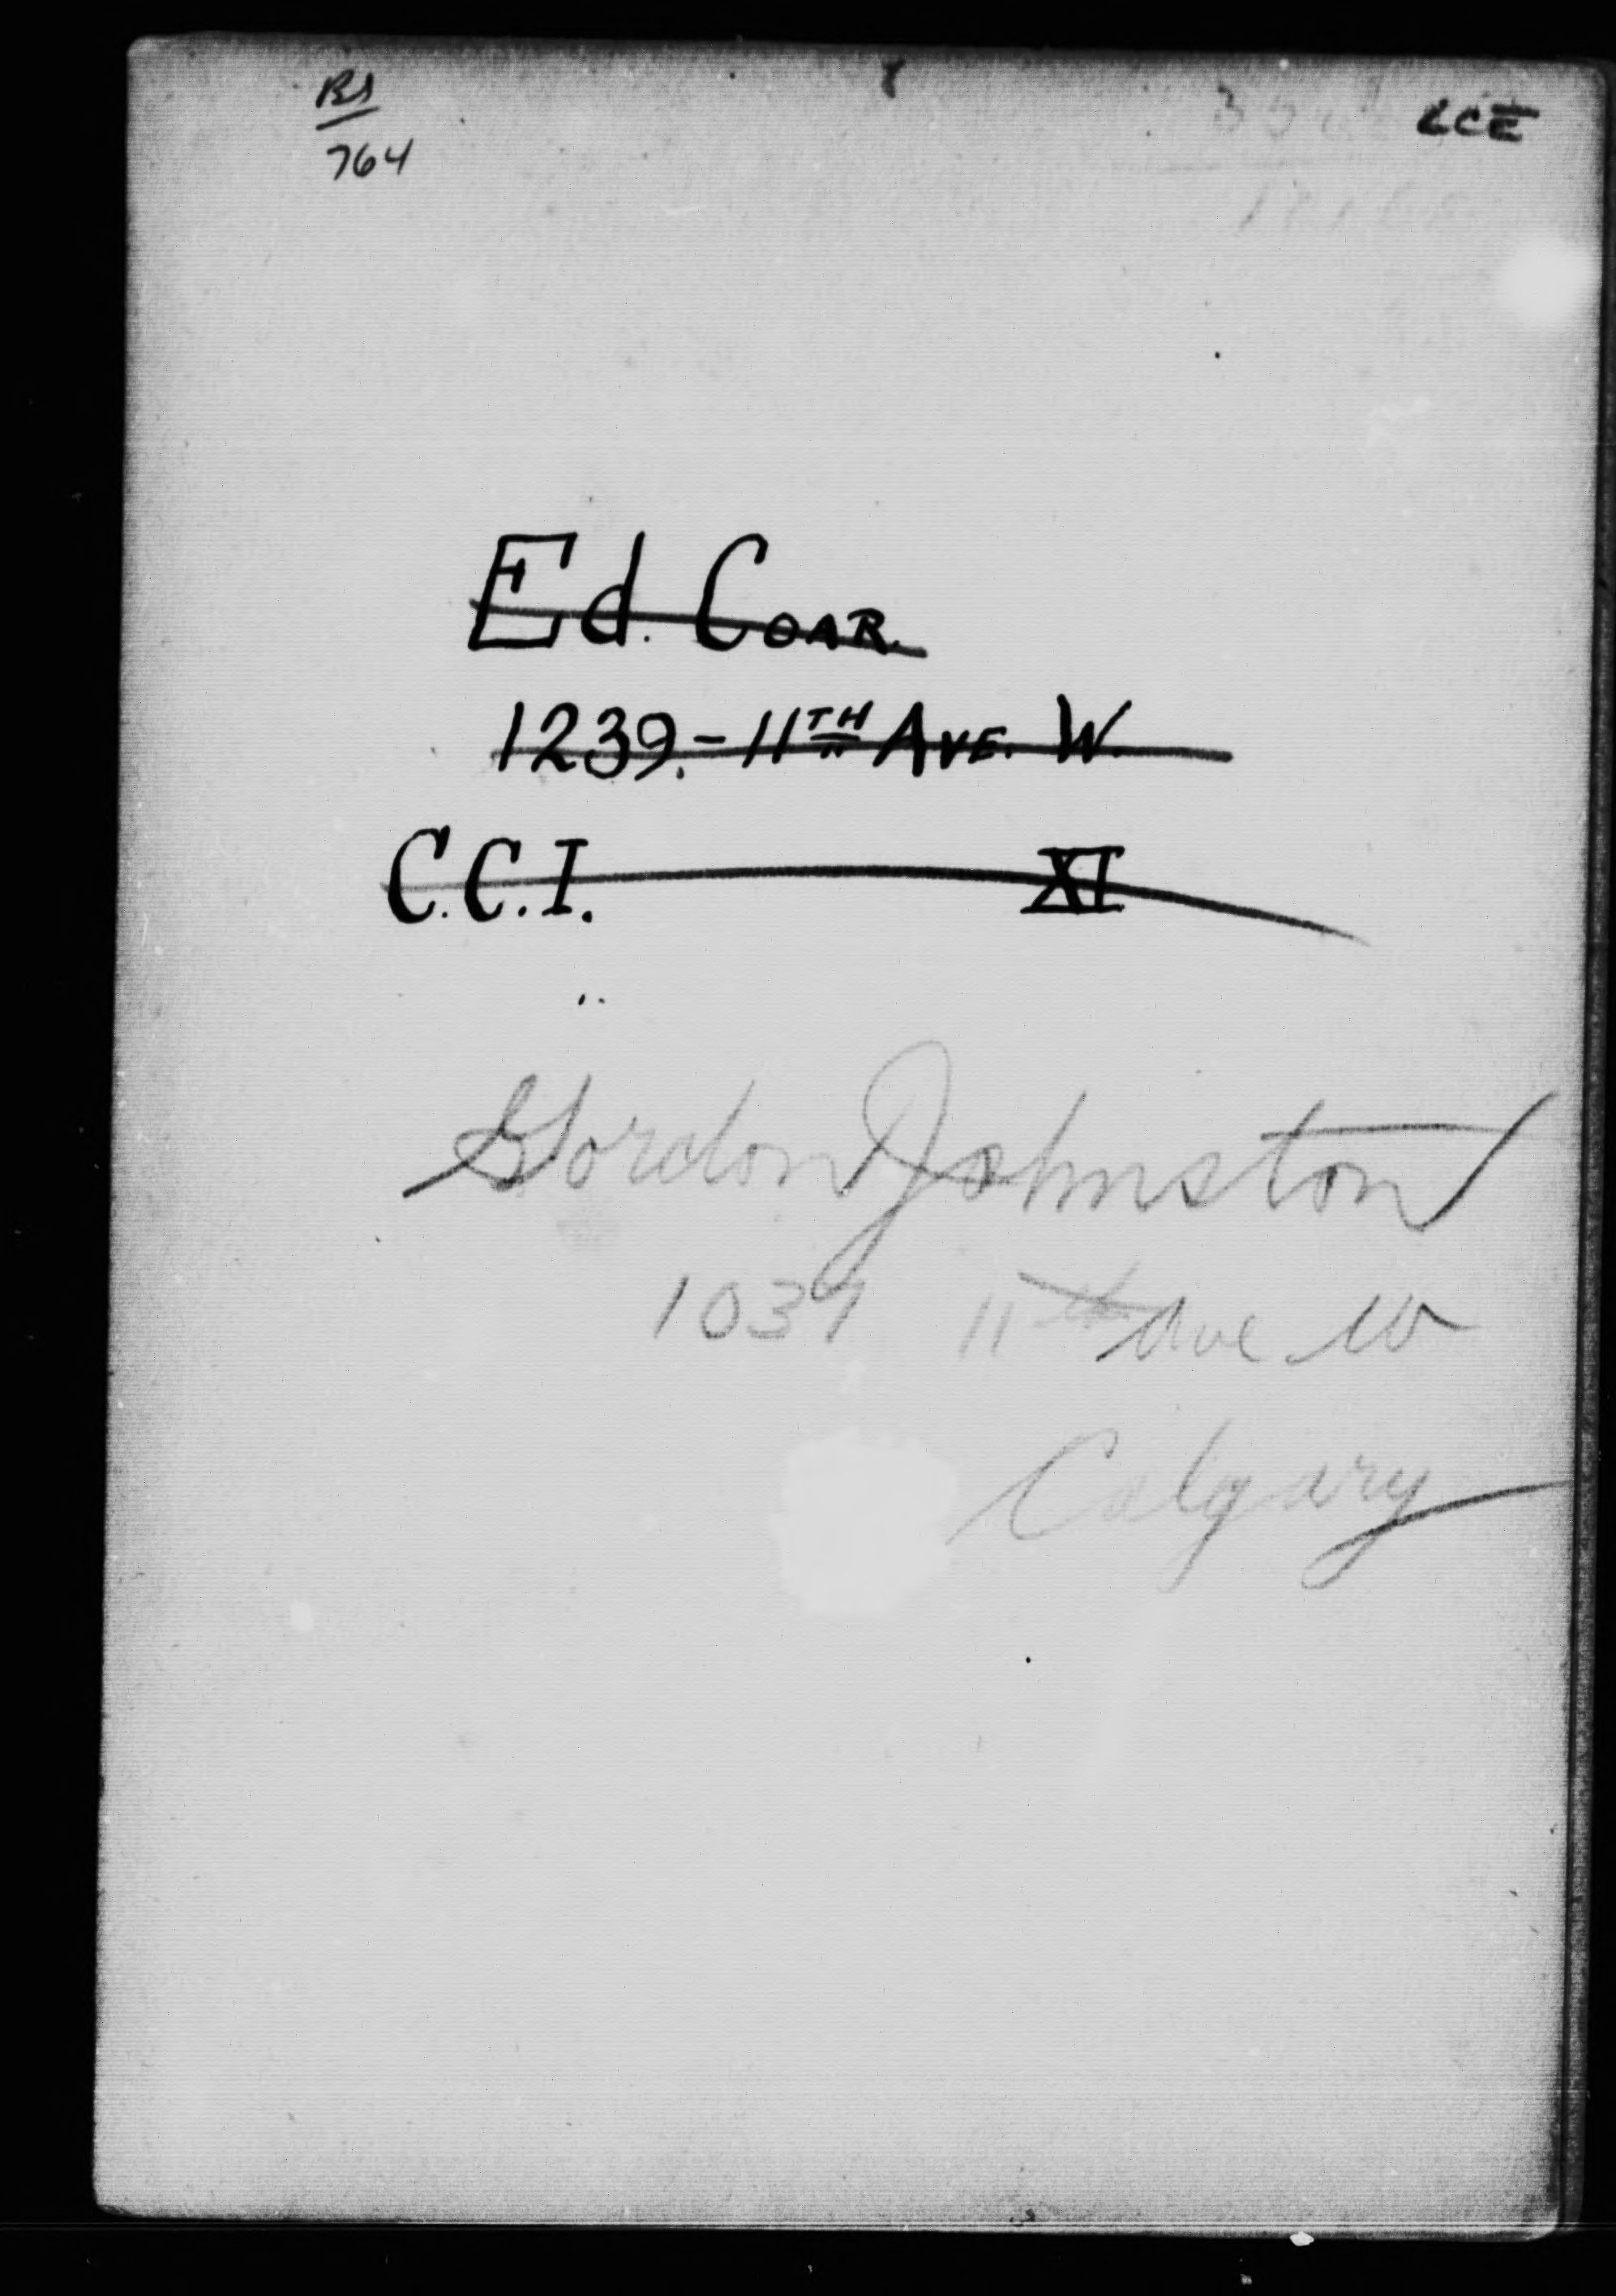 764
LCE
Ed. COAR.
1239.-11TH AVE. W.
C.C.I. XI
Gordon Johnston
1039 11th Ave W
Calgary